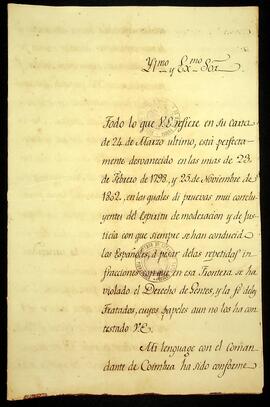 Yll.mo y Ex.mo Sor
Todo lo que V.E refiere en su carta
de 24 de Marzo ultimo, está perfecta-
mente desvanecido en las mias de 23
de Febrero de 1798, y 25 de Noviembre de
1802, en las quales di pruevas mui concluy-
entes del Espiritu de moderacion y de Jus-
ticia con que siempre se han conducido
los Españoles, á pesar delas repetidas in-
fracciones con que en esa Frontera se ha
violado el Derecho de Gentes, y la fé delos
Tratados, cuyos papeles aun no los ha con-
testado V.E
Mi lenguage con el Coman-
dante de Coimbra ha sido conforme